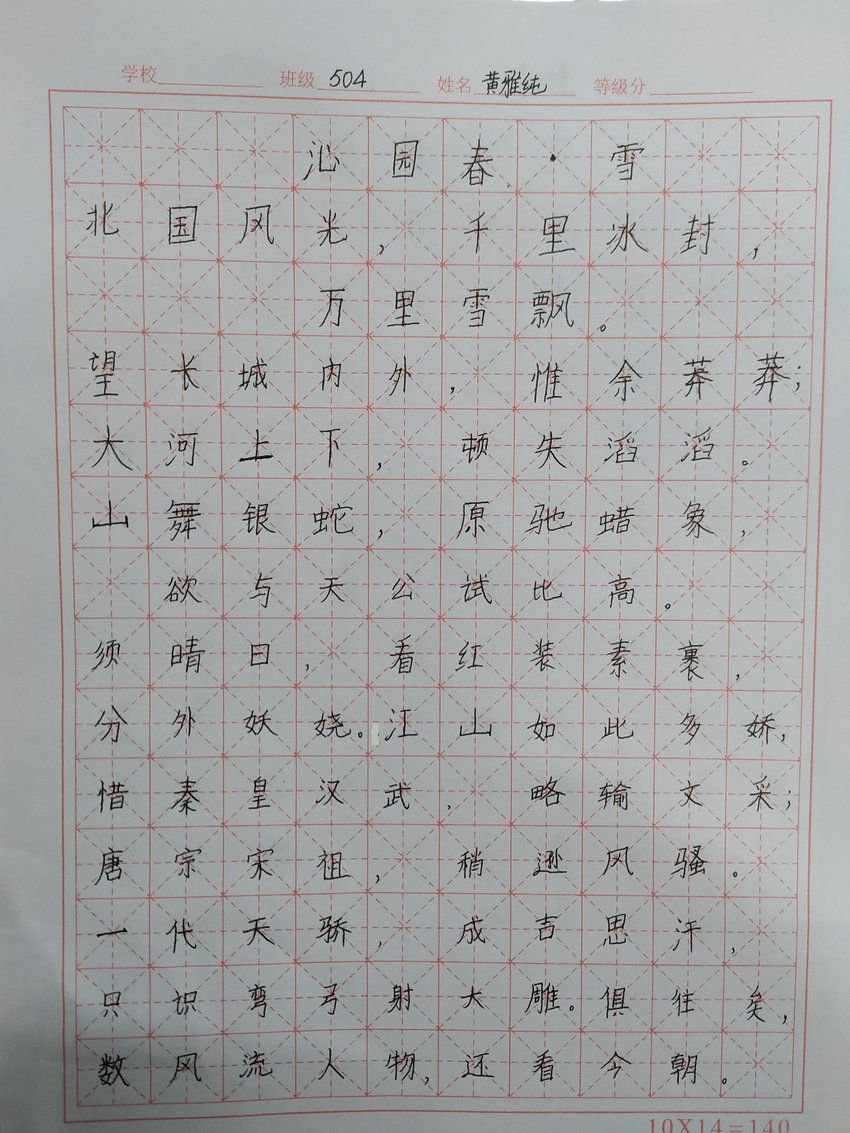 学校 班级 504 姓名 黄雅纯 等级分
沁园春·雪
北国风光，千里冰封，
万里雪飘。
望长城内外，惟余莽莽；
大河上下，顿失滔滔。
山舞银蛇，原驰蜡象，
欲与天公试比高。
须晴日，看红装素裹，
分外妖娆。江山如此多娇，
惜秦皇汉武，略输文采；
唐宗宋祖，稍逊风骚。
一代天骄，成吉思汗，
只识弯弓射大雕。俱往矣，
数风流人物，还看今朝。
10X14=140